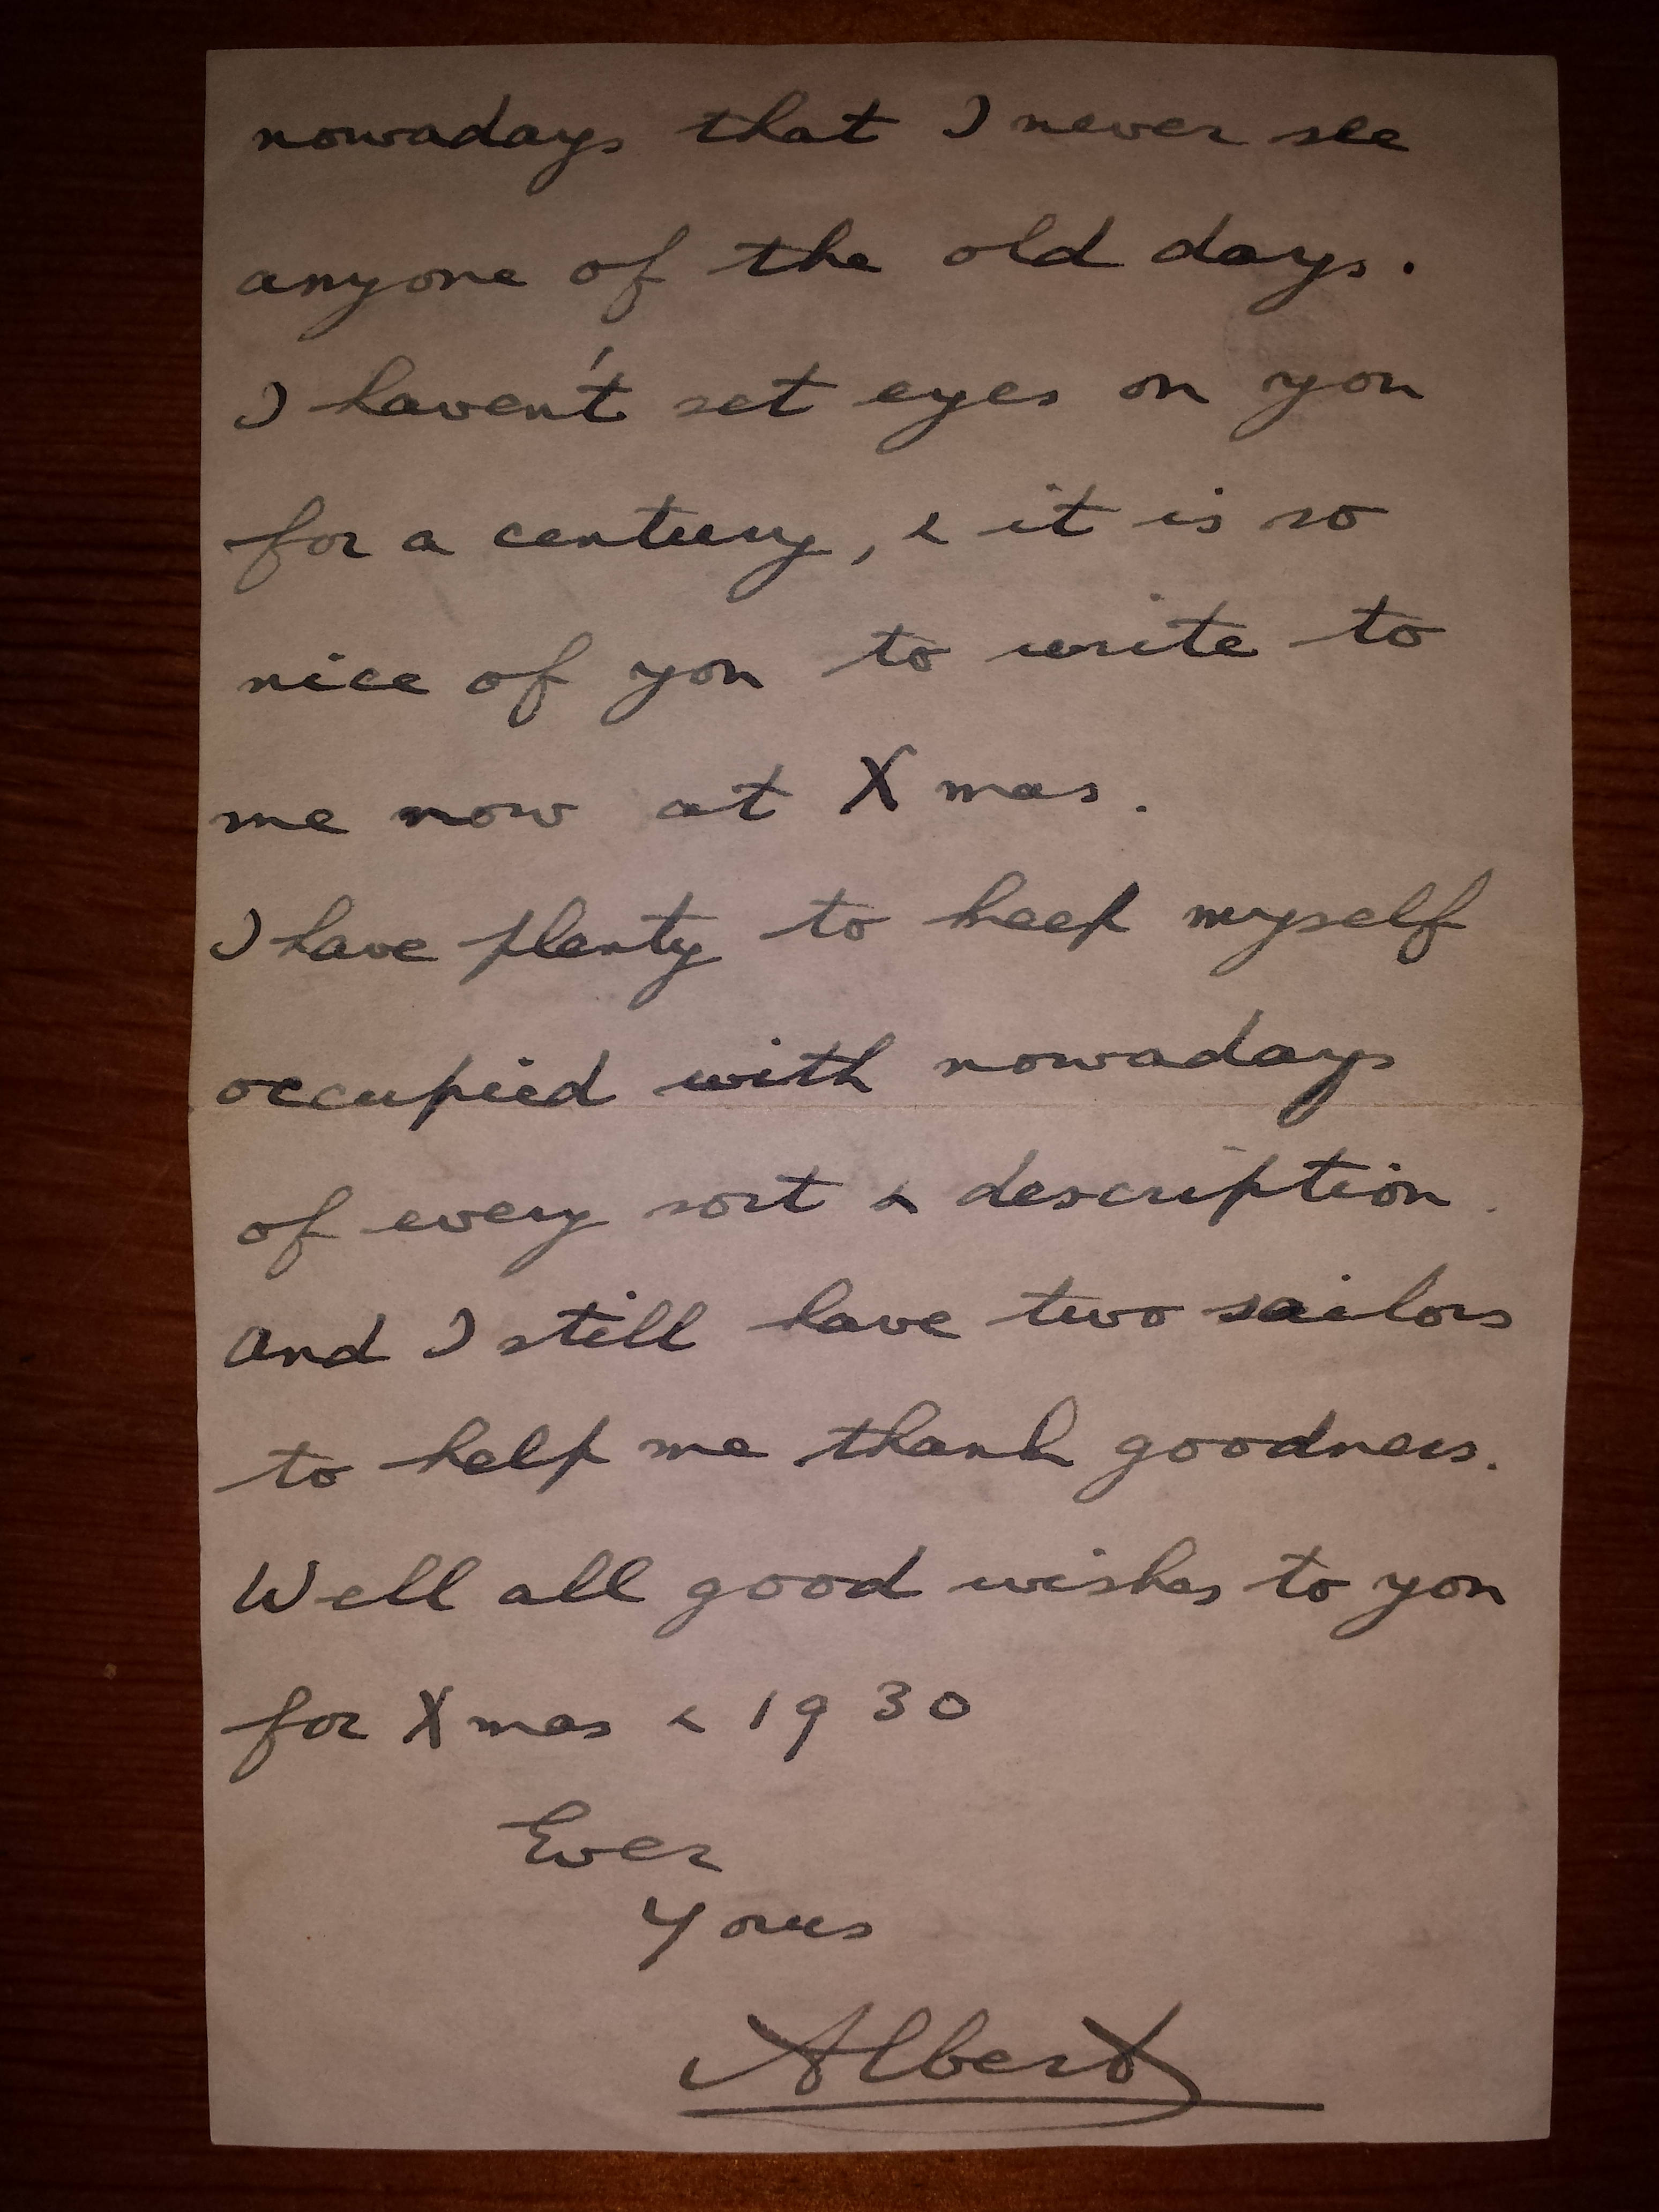 nowadays that I never see
anyone of the old days.
I haven't set eyes on you
for a century, & it is so
nice of you to write to
me now at Xmas.
I have plenty to keep myself
occupied with nowadays
of every sort & description.
And I still have two sailors
to help me thank goodness.
Well all good wishes to you
for Xmas & 1930
Ever
Yours
Albert